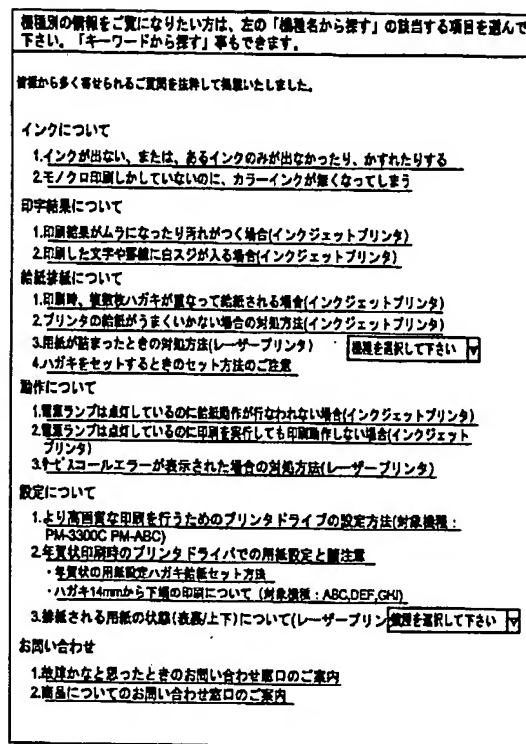 機種別の情報をご覧になりたい方は、左の「機種名から探す」の該当する項目を選んで
下さい。「キーワードから探す」事もできます。
皆様から多く寄せられるご質問を抜粋して掲載いたしました。
インクについて
1.インクが出ない、または、あるインクのみが出なかったり、かすれたりする
2.モノクロ印刷しかしていないのに、カラーインクが無くなってしまう
印字結果について
1.印刷結果がムラになったり汚れがつく場合(インクジェットプリンタ)
2.印刷した文字や罫線に白スジが入る場合(インクジェットプリンタ)
給紙排紙について
1.印刷時、複数枚ハガキが重なって給紙される場合(インクジェットプリンタ)
2.プリンタの給紙がうまくいかない場合の対処方法(インクジェットプリンタ)
3.用紙が詰まったときの対処方法(レーザープリンタ) 機種を選択して下さい
4.ハガキをセットするときのセット方法のご注意
動作について
1.電源ランプは点灯しているのに給紙動作が行なわれない場合(インクジェットプリンタ)
2.電源ランプは点灯しているのに印刷を実行しても印刷動作しない場合(インクジェット
プリンタ)
3.サービスコールエラーが表示された場合の対処方法(レーザープリンタ)
設定について
1.より高画質な印刷を行うためのプリンタドライブの設定方法(対象機種：
PM-3300C PM-ABC)
2.年賀状印刷時のプリンタドライバでの用紙設定と諸注意
・年賀状の用紙設定ハガキ給紙セット方法
・ハガキ14mmから下端の印刷について (対象機種：ABC,DEF,GHI)
3.排紙される用紙の状態(表裏/上下)について(レーザープリン 機種を選択して下さい
お問い合わせ
1.故障かなと思ったときのお問い合わせ窓口のご案内
2.商品についてのお問い合わせ窓口のご案内